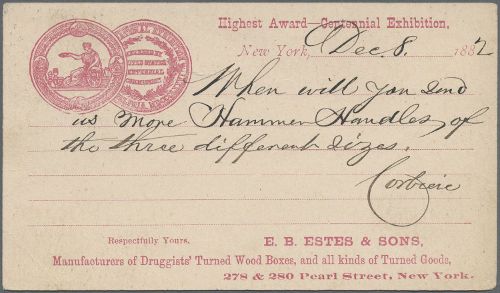 Highest Award—Centennial Exhibition,
New York, Dec. 8. 1882
AWARDED BY
UNITED STATES
CENTENNIAL
COMMISSION
When will you send
us more Hammer Handles, of
the three different sizes.
Respectfully Yours,
E. B. ESTES & SONS,
Manufacturers of Druggists' Turned Wood Boxes, and all kinds of Turned Goods,
278 & 280 Pearl Street, New York.